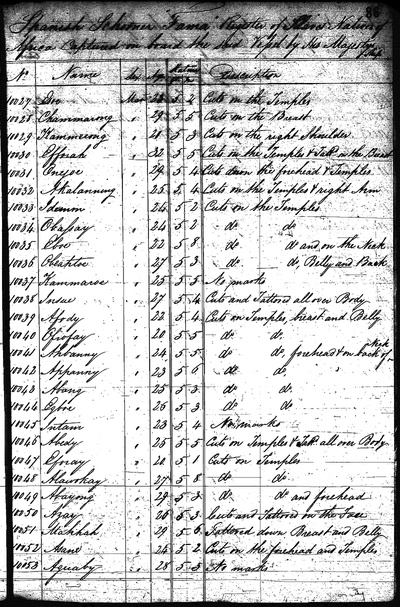 Spanish Schooner "Fama" Register of Slaves Natives of
Africa Captured on board the said Vessel by His Majesty's
86
No Name Age Description
10027 Evo Man 28 5 2 Cuts on the Temples
10028 Chammarong " 29 5 5 Cuts on the Breast
10029 Hammerong " 28 5 3 Cuts on the right Shoulder
10030 Effoiah " 32 5 5 Cuts on the Temples & on the Breast
10031 Oneyoe " 29 5 4 Cuts down the forehead & Temples
10032 Akalannuy " 25 5 4 Cuts on the Temples & right Arm
10033 Idemm " 24 5 2 Cuts on the Temples
10034 Obassay " 24 5 2 do do
10035 Eboe " 22 5 8 do do and on the Neck
10036 " 27 5 3 do do, Belly and Back
10037 Kammaroe " 25 5 5 No marks
10038 Insue " 27 5 4 Cuts and Tattooed all over Body
10039 Afody " 22 5 4 Cuts on Temples, breast and Belly
10040 Otiofay " 20 5 5 do do
10041 Ahbanny " 24 5 5 do do, forehead & on back of Neck
10042 Appanny " 23 5 6 do do
10043 Abang " 25 5 3 do do
10044 Egboe " 26 5 3 do do
10045 Intam " 23 5 4 No marks
10046 Abedy " 25 5 5 Cuts on Temples & all over Body
10047 Efoay " 20 5 1 Cuts on Temples
10048 " 27 5 8 do do
10049 Abayong " 29 5 3 do do and forehead
10050 Azay " 26 5 3 Cuts and Tattooed on the Face
10051 Mahhah " 29 5 6 Tattooed down Breast and Belly
10052 " 24 5 2 Cuts on the forehead and Temples
10053 Aquaby " 28 5 5 No marks